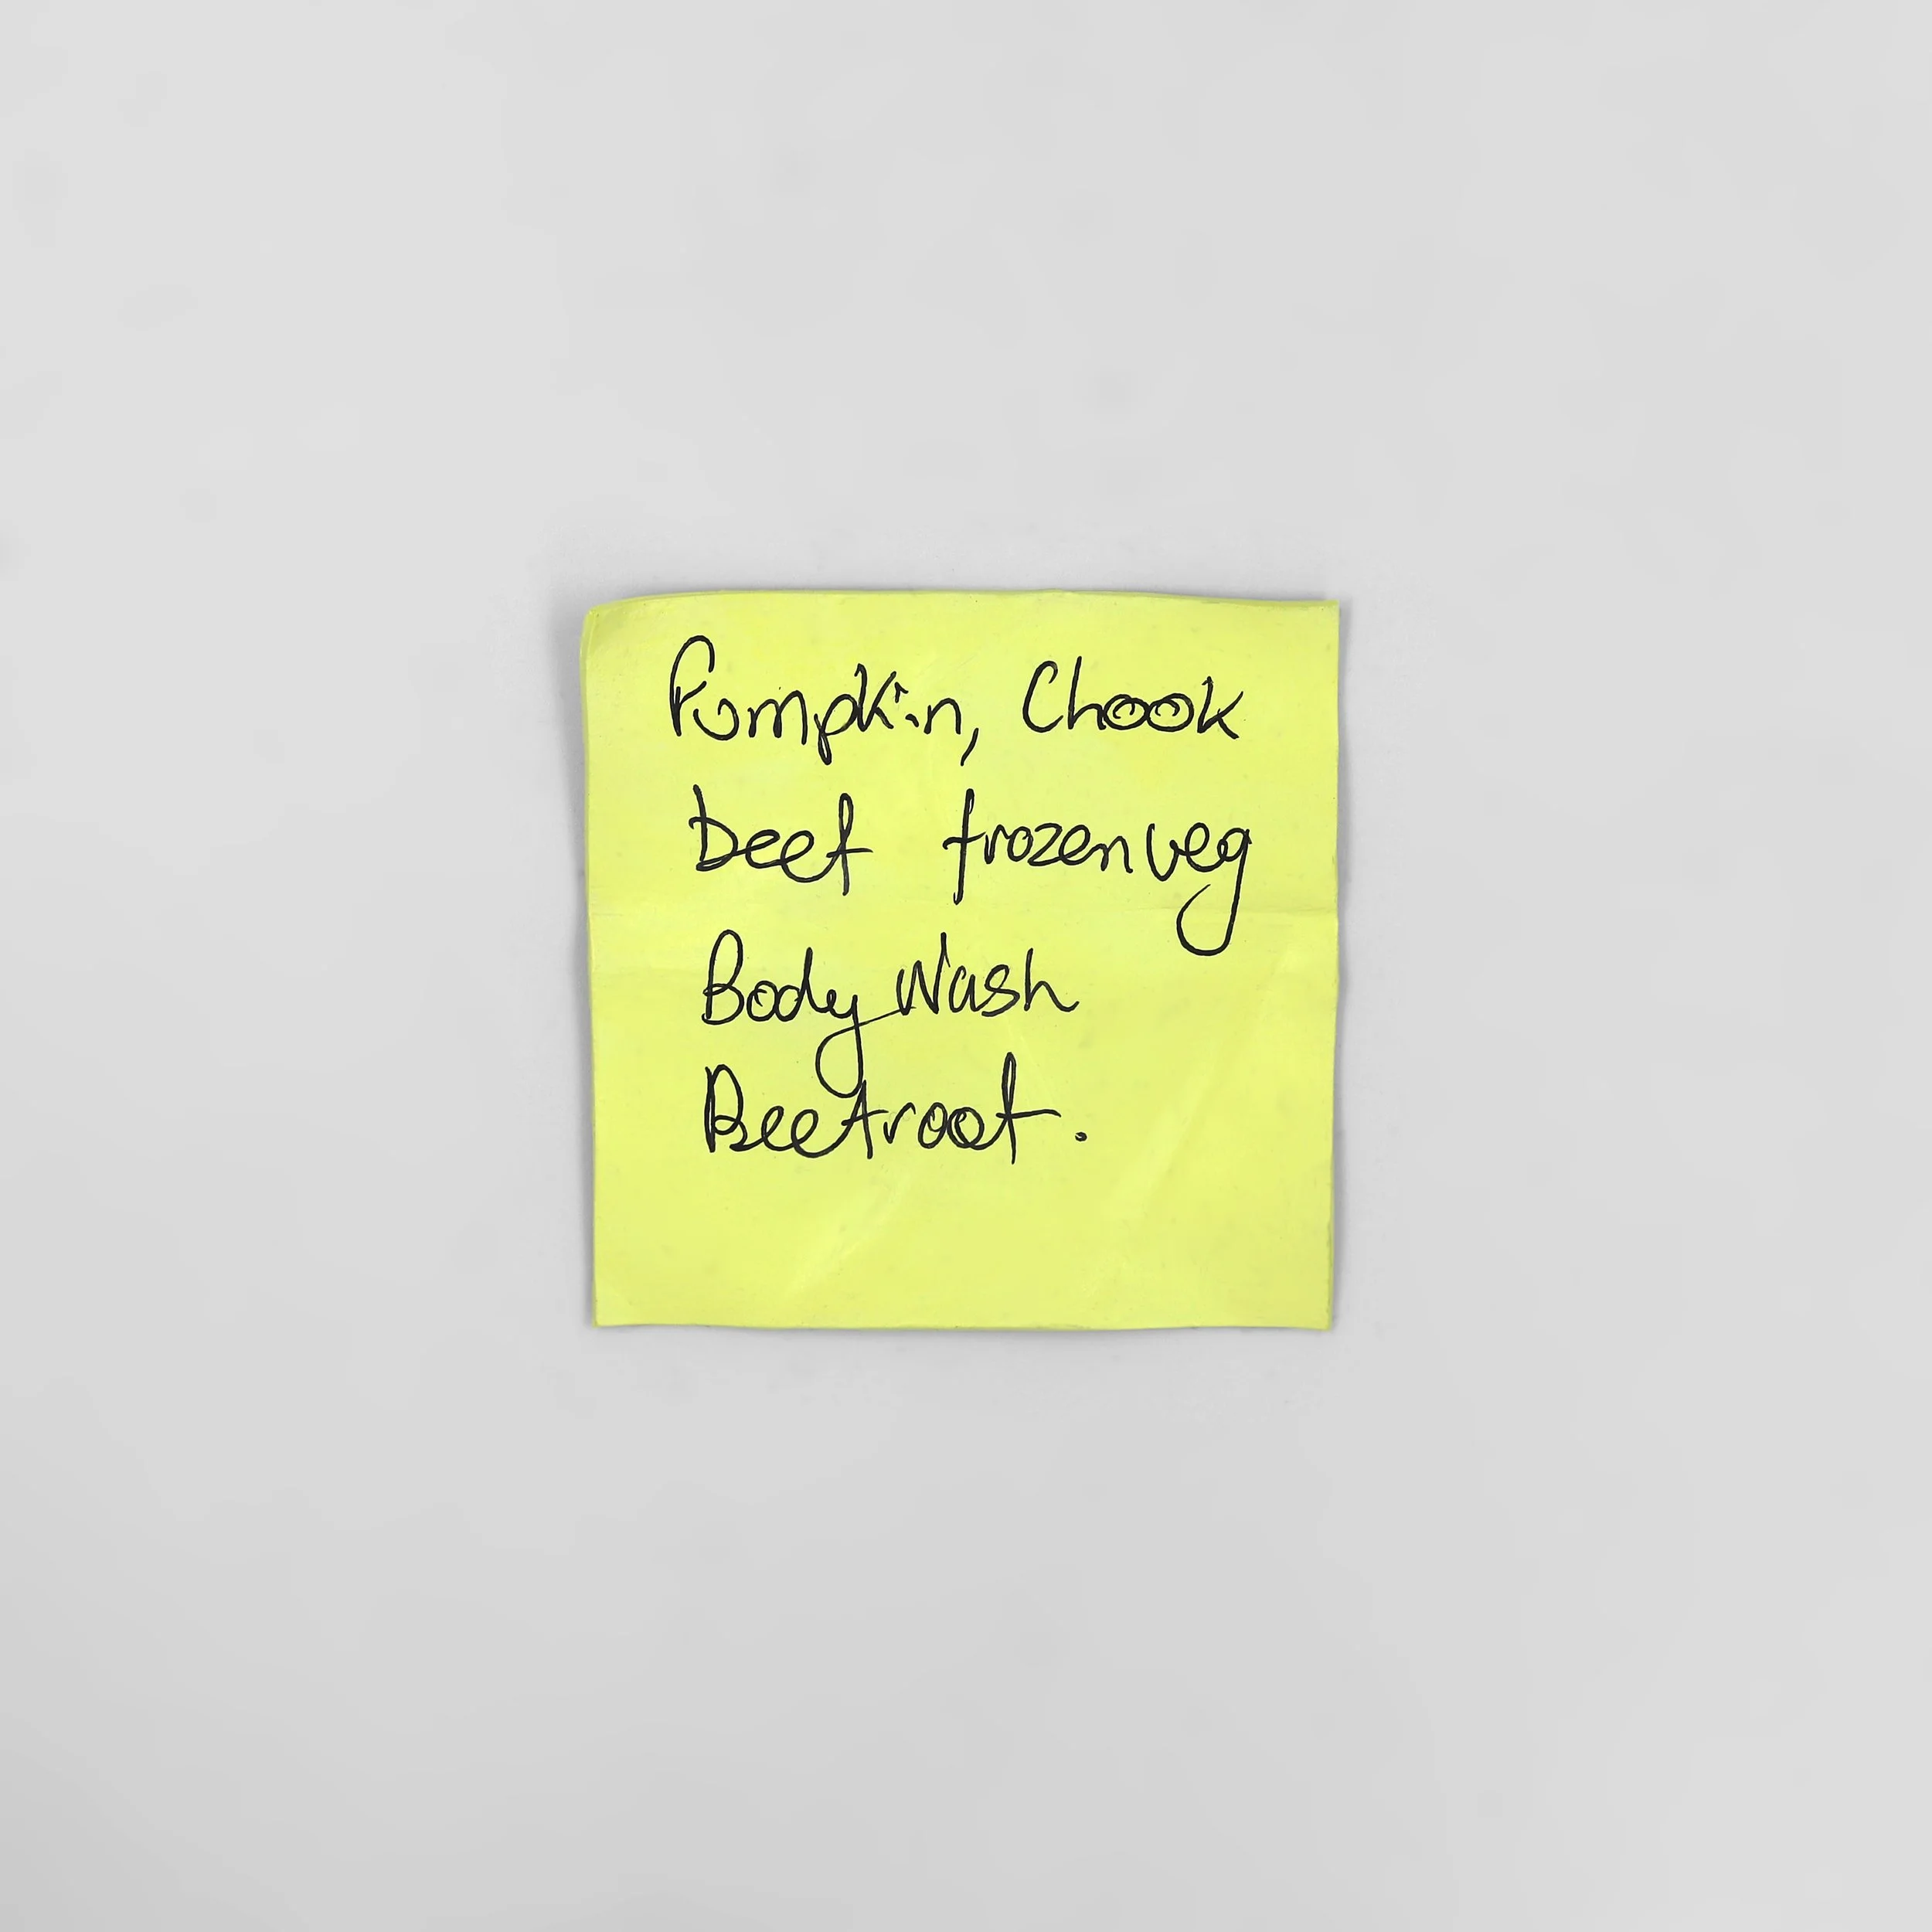 Pumpkin, Chook
beef frozen veg
Body Wash
Beetroot.